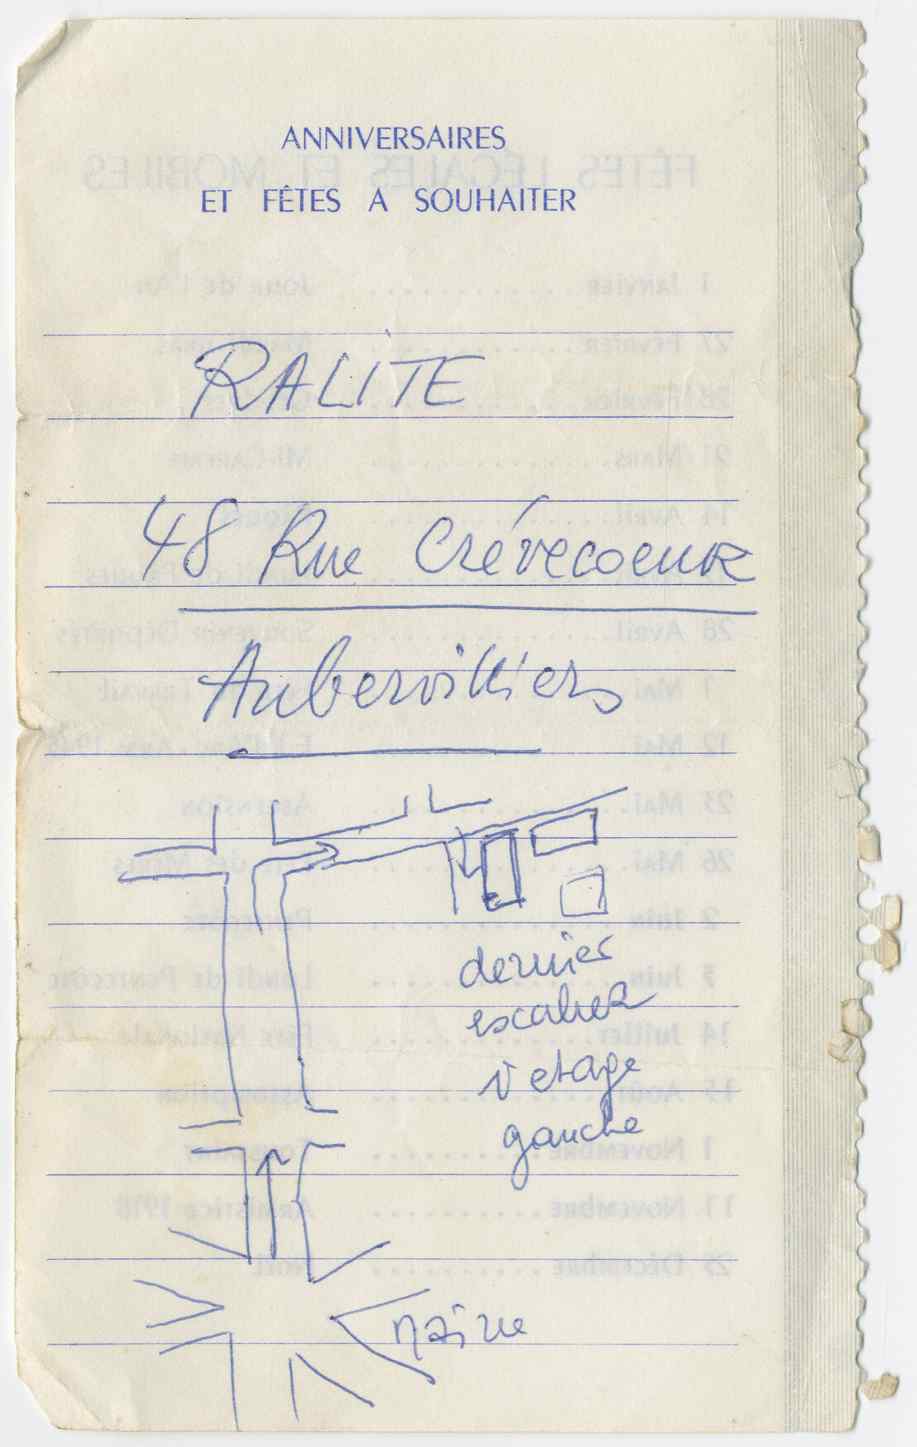 ANNIVERSAIRES
ET FÊTES A SOUHAITER
RALITE
48 Rue Crévecoeur
Aubervilliers
dernier
escalier
etage
gauche